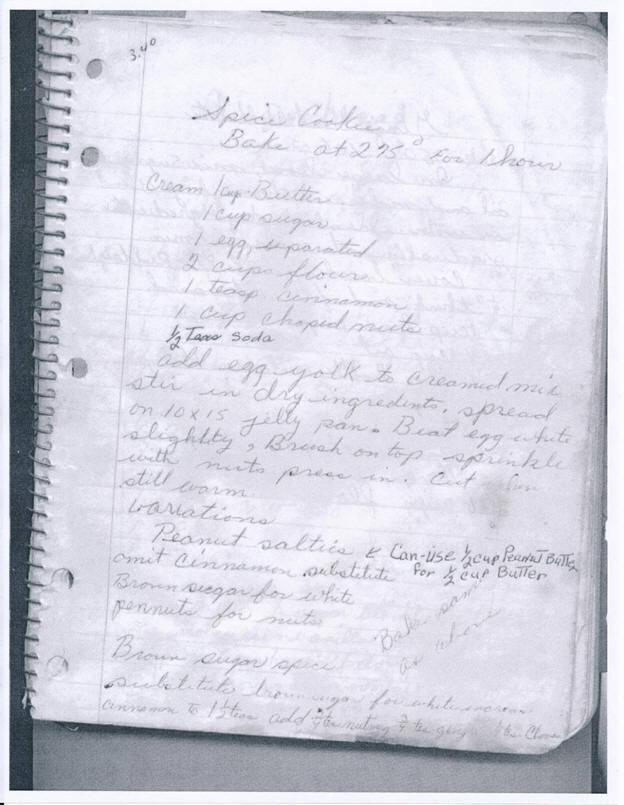 3.40
Spice Cookies
Bake at 275° For 1 hour
Cream 1 cup Butter
1 cup sugar
1 egg, separated
2 cups flour
1 teasp cinnamon
1 cup choped nuts
1/2 Teas Soda
add egg yolk to creamed mix
stir in dry ingredients. spread
on 10 x 15 jelly pan. Beat egg white
slightly, Brush on top sprinkle
with nuts press in. Cut
still warm.
Variations
Peanut salties & Can-Use 1/2 cup Peanut Butter
omit cinnamon substitute for 1/2 cup Butter
Brown sugar for white
pennuts for nuts
Bake same
as above
Brown sugar spice
substitute brown sugar for white increase
cinnamon to 1 1/2 teas add nutmeg Clove